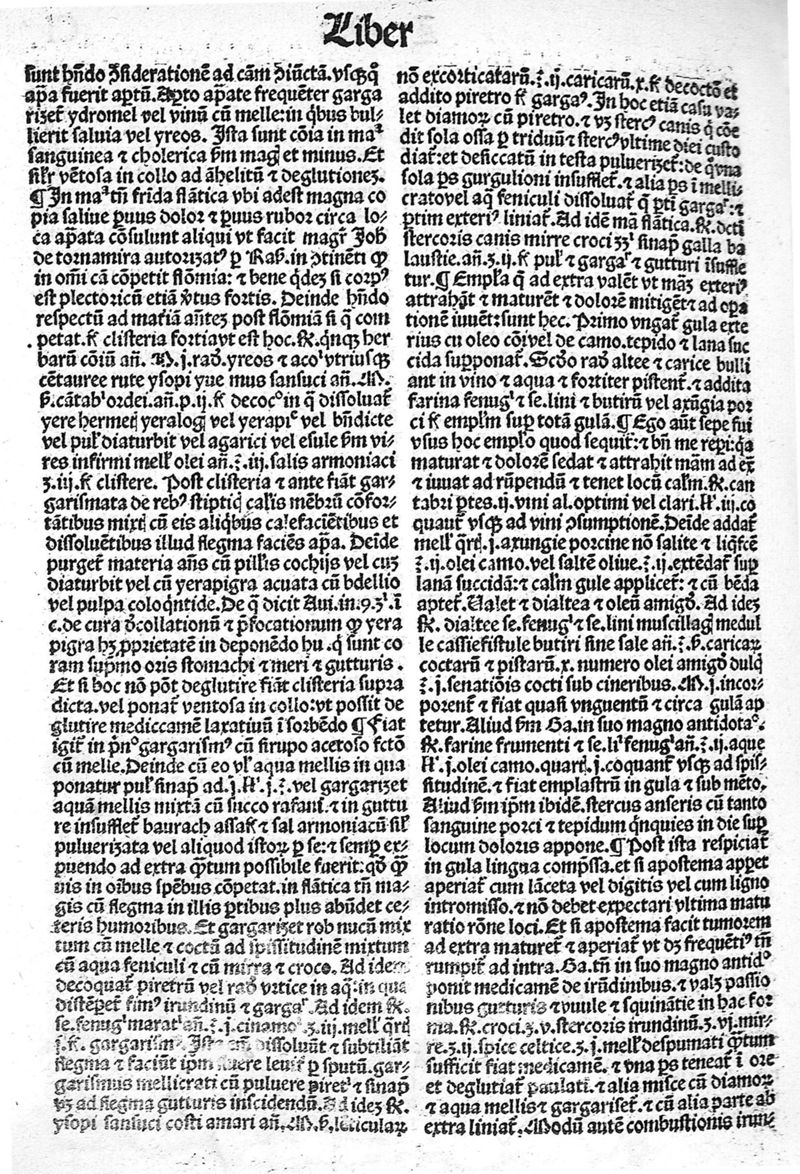 Liber
sunt hñdo ꝯsiderationē ad cām ꝯiūctā. vsqꝫ qͦ
apa fuerit aptū. Apto apate frequēter garga
rizet ydromel vel vinū cū melle: in qͥbus bul-
lierit saluia vel yreos. Ista sunt cōia in maᵃ
sanguinea ⁊ cholerica ẜm mag et minus. Et
silr vētosa in collo ad āhelitū ⁊ deglutionez.
¶ In maᵃ tñ frida flātica vbi adest magna co
pia saliue puus dolor ⁊ puus rubor circa lo-
ca apata cōsulunt aliqui vt facit magr Joh
de tornamira autorizatꝰ ꝑ Rab. in ꝯtinēti ꝙ
in oī cā cōpetit flōmia: ⁊ bene qͥdez si corpꝰ
est plectoricū etiā ꝟtus fortis. Deinde hñdo
respectū ad mat̄iā añtez post flōmiā si qͣ com
petat. fꝭ clisteria fortia vt est hoc. ℞. qͥnqꝫ her
barū cōiū añ. M. j. rad. yreos ⁊ acoꝰ vtriusqꝫ
cētauree rute ysopi yue mus sansuci añ. M.
ẜ. cātabꝰ ordei. añ. p. ij. fꝭ decocͦ in qͣ dissoluat̄
yere hermeᵗ yeralogᵗ vel yerapiᶜ vel bñdicte
vel pul diaturbit vel agarici vel esule ẜm vi-
res infirmi mell olei añ. ℥. iij. salis armoniaci
ʒ. iij. fꝭ clistere. Post clisteria ⁊ ante fiāt gar-
garismata de rebꝰ stiptiᶜ calis mēbrū cōfor-
tātibus mixᵗ cū eis aliqͥbus calefaciētibus et
dissoluētibus illud flegma faciēs apa. Deīde
purget̄ materia añs cū pillis cochijs vel cuꝫ
diaturbit vel cū yerapigra acuata cū bdellio
vel pulpa coloqͥntide. De qͣ dicit Aui. in. 9. 3ⁱ. ī
c. de cura ꝺcollationū ⁊ p̄focationum ꝙ yera
pigra hꝫ ꝓprietatē in deponēdo hu. qͥ sunt co
ram supmo oris stomachi ⁊ meri ⁊ gutturis.
Et si hoc nō pōt deglutire fiāt clisteria supra
dicta. vel ponat̄ ventosa in collo: vt possit de
glutire mediccamē laxatiuū ī sorbēdo ¶ Fiat
igit̄ in p̄nͦ gargarismꝰ cū sirupo acetoso fctō
cū melle. Deinde cū eo vl aqua mellis in qua
ponatur pul sinap ad. j. ℔. j. ℥. vel gargarizet
aquā mellis mixtā cū succo rafani. ⁊ in guttu
re insufflet̄ baurach assaf ⁊ sal armoniacū sil
puluerizata vel aliquod istoꝝ ꝑ se: ⁊ semꝑ ex-
puendo ad extra qͣtum possibile fuerit: qd qͣ
uis in oībus spēbus cōpetat. in flātica tñ ma-
gis cū flegma in illis ptibus plus abūdet ce-
teris humoribus. Et gargarizet rob nucū mix
tum cū melle ⁊ coctū ad spissitudinē mixtum
cū aqua feniculi ⁊ cū mirra ⁊ croco. Ad idem
decoquat̄ piretrū vel rad vrtice in aq: in qua
distēpet̄ fimꝰ irundinū ⁊ gargar̄. Ad idem ℞.
se. fenugᵗ marat añ. ℥. j. cinamoͥ ʒ. iij. mell
gargarism dissoluūt ⁊ subtiliāt
flegma ⁊ faciūt ipm fluere leuiᵗ ꝑ sputū. gar-
garismus mellicrati cū puluere piretⁱ ⁊ sinap
vꝫ ad flegma gutturis inscidendū. Ad idez ℞.
ysopi sansuci costi amari añ. M. ẜ. lēticulaꝝ
nō excorticatarū. ℥. ij. caricarū. x. fꝭ decoctō et
addito piretro fꝭ gargaꝰ. In hoc etiā casu va-
let diamoꝝ cū piretro. ⁊ vꝫ stercꝰ canis qͥ cōe
dit sola ossa ꝑ triduū ⁊ stercꝰ vltime diei custo
diat̄: et desiccatū in testa puluerizet̄: de qͦ vna
sola ps gurgulioni insufflet̄. ⁊ alia ps ī melli-
cratovel aq̄ feniculi dissoluat̄ qͣ pti gargar̄: ⁊
ptim exteriꝰ liniat̄. Ad idē mā flātica. ℞. dcti
stercoris canis mirre croci zzⁱ sinap galla ba
laustie. añ. ʒ. ij. fꝭ pul ⁊ gargar̄ ⁊ gutturi īsuffle
tur. ¶ Empla qͣ ad extra valēt vt maʒ exteriꝰ
attrahāt ⁊ maturēt ⁊ dolorē mitigēt ⁊ ad opa
tionē iuuēt: sunt hec. Primo vngat̄ gula exte
rius cu oleo cōi vel de camo. tepido ⁊ lana suc
cida supponat̄. Scdo rad altee ⁊ carice bulli
ant in vino ⁊ aqua ⁊ fortiter pistent̄. ⁊ addita
farina fenugᵗ ⁊ se. lini ⁊ butirū vel axūgia por
ci fꝭ emplm suꝑ totā gulā. ¶ Ego aūt sepe fui
vsus hoc emplo quod sequit̄: ⁊ bñ me reꝑi: qa
maturat ⁊ dolorē sedat ⁊ attrahit mām ad ex̄
⁊ iuuat ad rūpendū ⁊ tenet locū calm. ℞. can
tabri ptes. ij. vini al. optimi vel clari. ℔. iij. co
quant̄ vsqꝫ ad vini ꝯsumptionē. Deīde addat̄
mell qrᵗ. j. axungie porcine nō salite ⁊ liqfcē
℥. ij. olei camo. vel saltē oliue. ℥. ij. extēdat̄ suꝑ
lanā succidā: ⁊ calm gule applicet̄: ⁊ cū bēda
aptet̄. Ualet ⁊ dialtea ⁊ oleū amigd. Ad idez
℞. dialtee se. fenugᵗ ⁊ se. lini muscillagᵗ medul
le cassiefistule butiri sine sale añ. ℥. ẜ. caricaꝝ
coctarū ⁊ pistarū. x. numero olei amigd dulᶜ
℥. j. senatiōis cocti sub cineribus. M. j. incor-
porent̄ ⁊ fiat quasi vnguentū ⁊ circa gulā ap
tetur. Aliud ẜm Ga. in suo magno antidotaͦ.
℞. farine frumenti ⁊ se. liⁱ fenugᵗ añ. ℥. ij. aque
℔. j. olei camo. quarᵗ. j. coquant̄ vsqꝫ ad spis-
situdinē. ⁊ fiat emplastrū in gula ⁊ sub mēto.
Aliud ẜm ipm ibidē. stercus anseris cū tanto
sanguine porci ⁊ tepidum qͥnquies in die suꝑ
locum doloris appone. ¶ Post ista respiciat̄
in gula lingua comp̄ssa. et si apostema appet
aperiat̄ cum lāceta vel digitis vel cum ligno
intromisso. ⁊ nō debet expectari vltima matu
ratio rōne loci. Et si apostema facit tumorem
ad extra maturet̄ ⁊ aperiat̄ vt dꝫ frequētiꝰ tñ
rumpit̄ ad intra. Ga. tñ in suo magno antidͦ
ponit medicamē de irūdinibus. ⁊ valꝫ passio
nibus gutturis ⁊ vuule ⁊ squinātie in hac for
ma. ℞. croci. ʒ. v. stercoris irundinū. ʒ. vj. mir-
re. ʒ. ij. spice celtice. ʒ. j. mell despumati qͣtum
sufficit fiat medicamē. ⁊ vna ps teneat̄ ī ore
et deglutiat̄ paulati. ⁊ alia misce cū diamoꝝ
⁊ aqua mellis ⁊ gargariset̄. ⁊ cū alia parte ab
extra liniat̄. Modū autē combustionis irun-